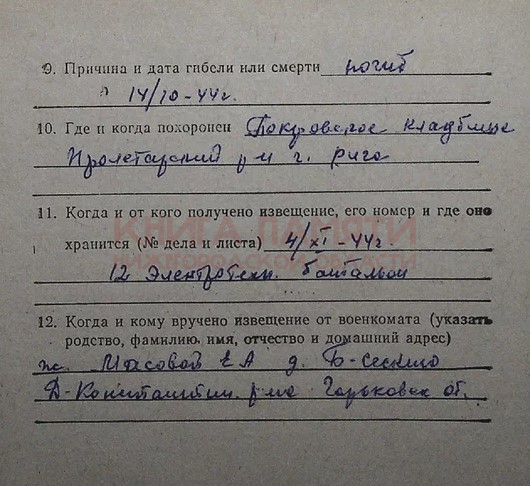 9. Причина и дата гибели или смерти погиб
14/10-44г.
10. Где и когда похоронен Покровское кладбище
Пролетарский р-н г. Рига
11. Когда и от кого получено извещение, его номер и где оно
хранится (№ дела и листа) 4/XI-44г.
КНИГА ПАМЯТИ
НИЖЕГОРОДСКОЙ ОБЛАСТИ
12 Электротехн. батальон
12. Когда и кому вручено извещение от военкомата (указать
родство, фамилию, имя, отчество и домашний адрес)
ж. Масовой Е А д. Б-Сескино
Д-Константин. р-на Горьковск об.